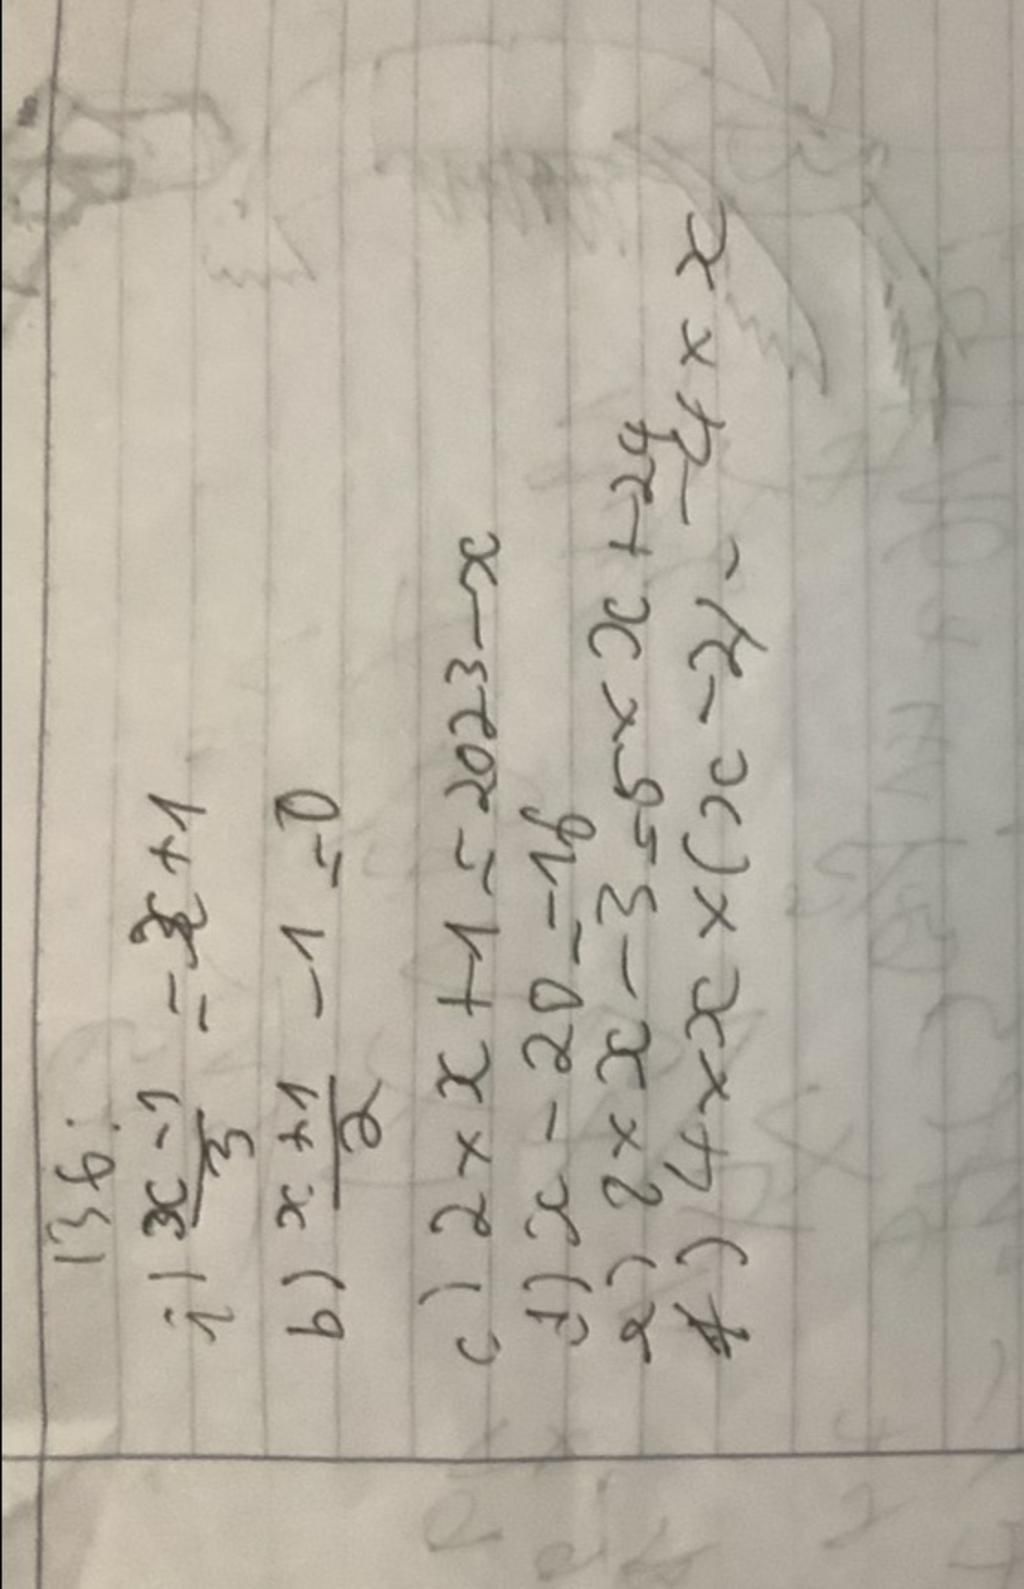 136.
i) x-1/3 = x+1
b) x+1/2 -1 = 0
c) 2 × x + 1 = 2023 - x
d) x - 20 = -16
2 × x - 3 = 5 × x + 24
4 × x × (x -